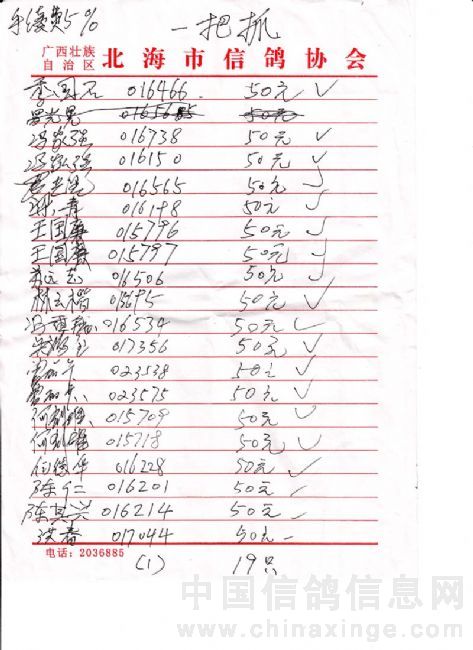 手续费5%
一把抓
广西壮族自治区 北海市信鸽协会
李国石 016466 50元 ✓
016565 50元
冯家强 016738 50元 ✓
冯家强 016150 50元 ✓
016565 50元 ✓
016198 50元 ✓
王国寿 015796 50元 ✓
王国寿 015797 50元 ✓
016506 50元 ✓
50元 ✓
冯 016534 50元 ✓
017356 50元 ✓
023538 50元 ✓
023575 50元 ✓
何 015709 50元 ✓
何 015718 50元 ✓
伯德华 016228 50元 ✓
陈仁 016201 50元 ✓
陈其兴 016214 50元 ✓
洪春 017044 50元
电话：2036885
(1) 19只
中国信鸽信息网
www.chinaxinge.com